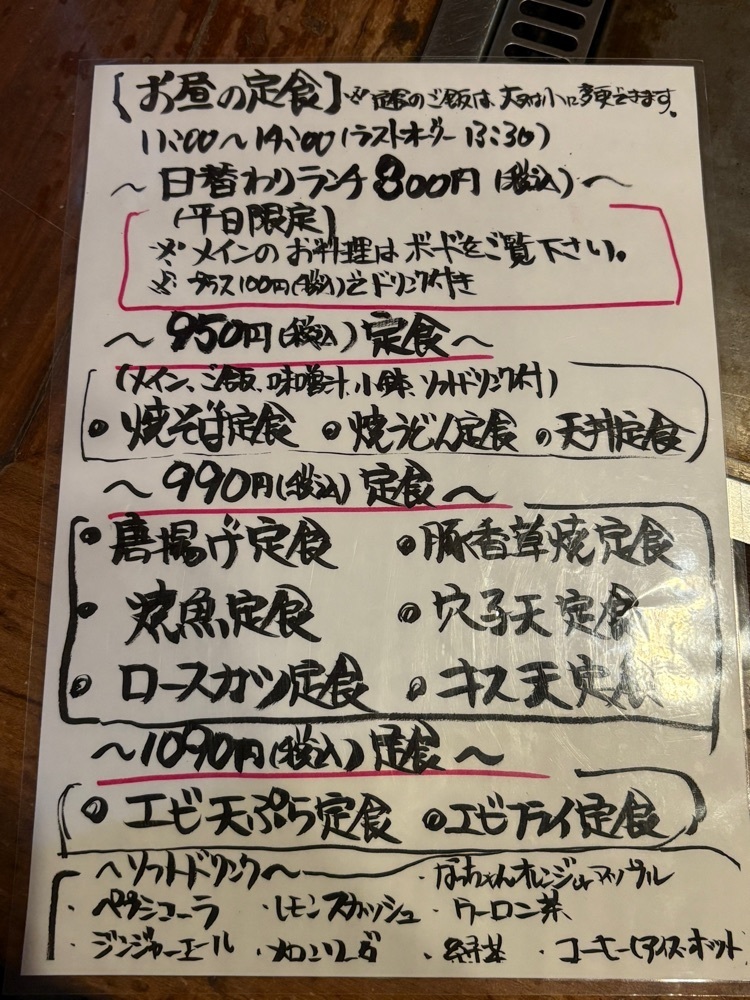 【お昼の定食】※定食のご飯は、大又は小に変更できます。
11:00〜14:00(ラストオーダー 13:30)
〜日替わりランチ800円(税込)〜
(平日限定)
※メインのお料理はボードをご覧下さい。
※プラス100円(税込)でドリンク付き
〜950円(税込)定食〜
(メイン、ご飯、味噌汁、小鉢、ソフトドリンク付)
・焼そば定食 ・焼うどん定食 ・天丼定食
〜990円(税込)定食〜
・唐揚げ定食 ・豚香草焼定食
・焼魚定食 ・穴子天定食
・ロースカツ定食 ・キス天定食
〜1090円(税込)定食〜
・エビ天ぷら定食 ・エビフライ定食
〜ソフトドリンク〜 ・なっちゃんオレンジorアップル
・ペプシコーラ ・レモンスカッシュ ・ウーロン茶
・ジンジャーエール ・メロンソーダ ・緑茶 ・コーヒー(アイス・ホット